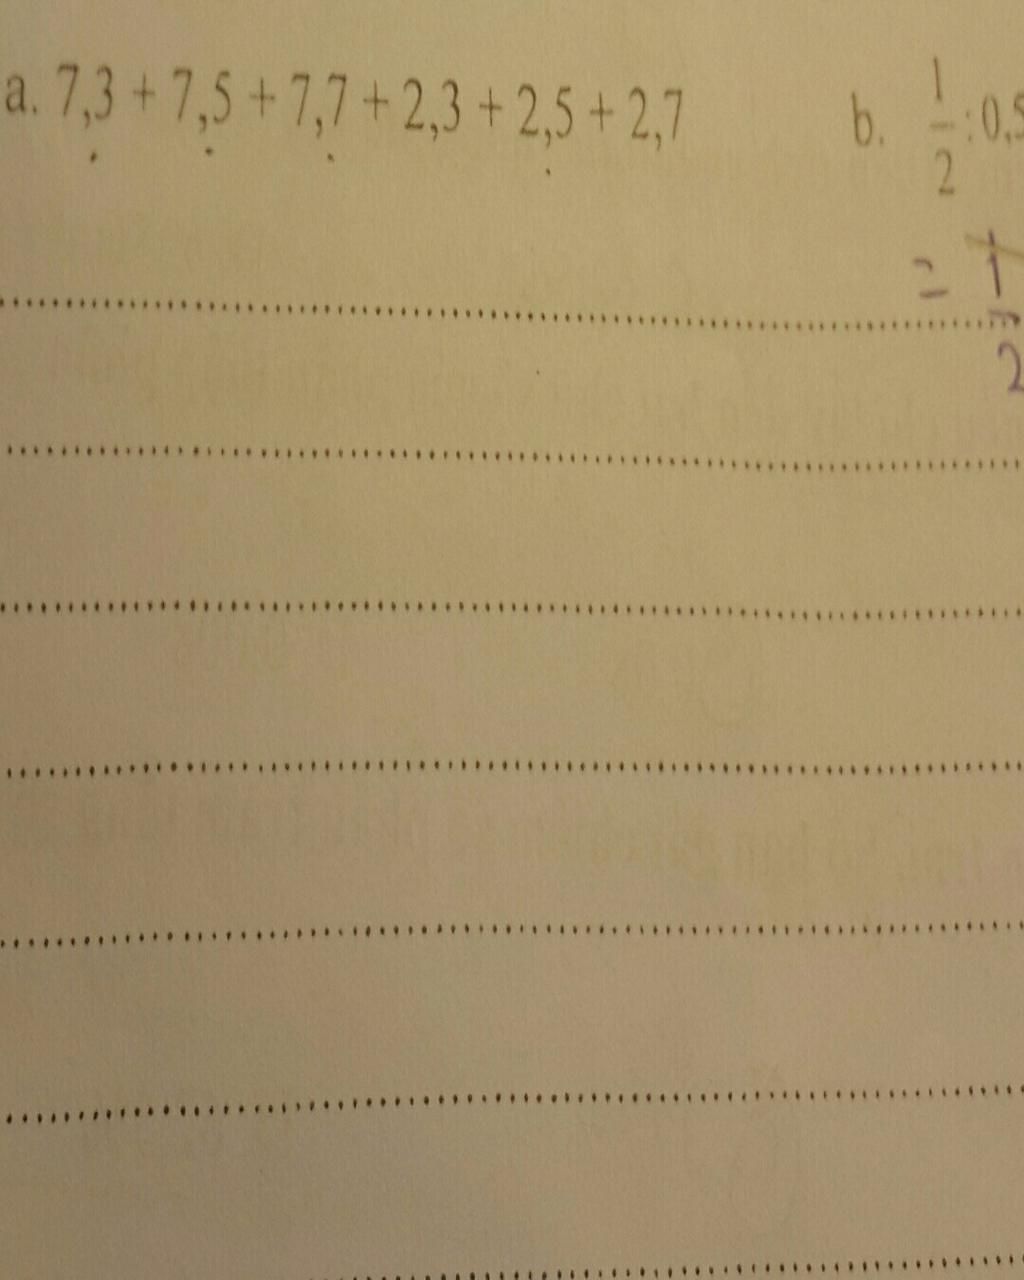 a. 7,3 + 7,5 + 7,7 + 2,3 + 2,5 + 2,7
b. 1/2 : 0,5
= 1/2